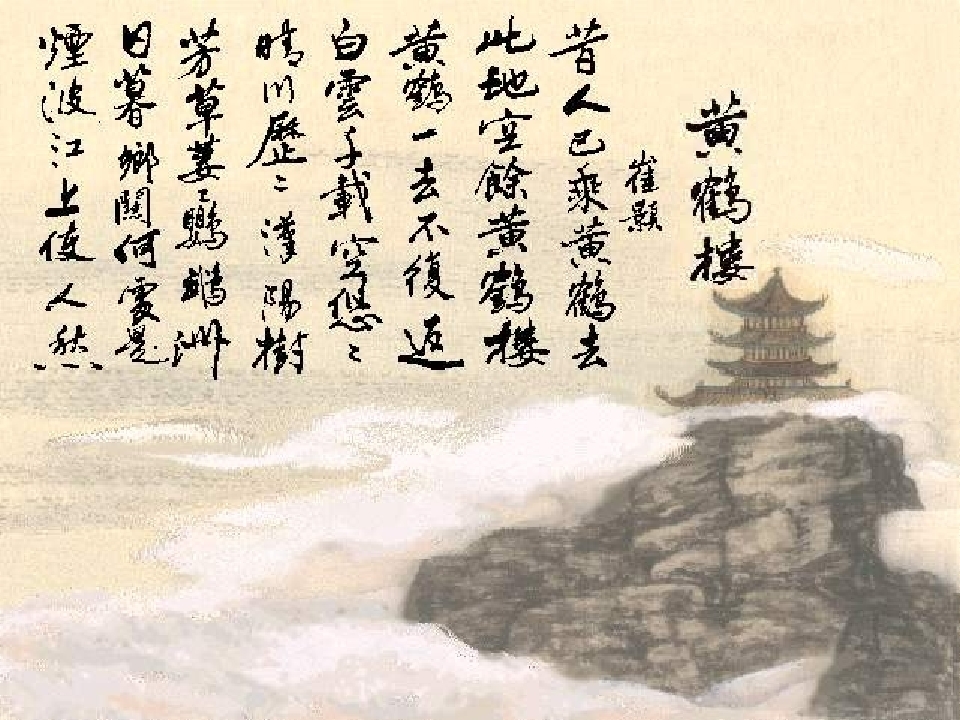 黄鹤樓
崔顥
昔人已乘黄鹤去
此地空餘黄鹤樓
黄鹤一去不復返
白雲千載空悠〻
晴川歷〻漢陽樹
芳草萋〻鸚鵡洲
日暮鄉關何處是
煙波江上使人愁